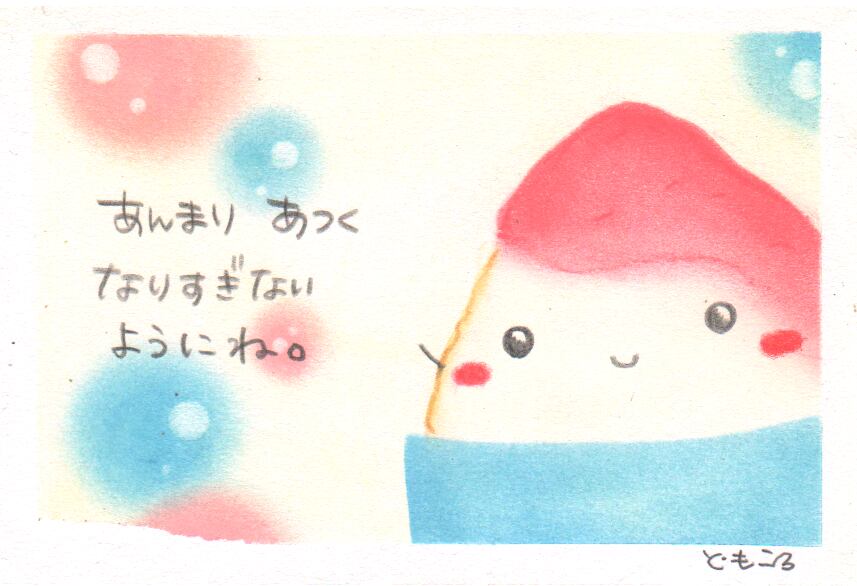 あんまり あつく
なりすぎない
ようにね。
と・もころ